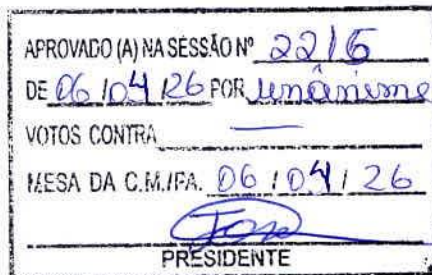 APROVADO (A) NA SESSÃO Nº 2216
DE 06/04/26 POR unânime
VOTOS CONTRA —
MESA DA C.M./PA. 06/04/26
PRESIDENTE